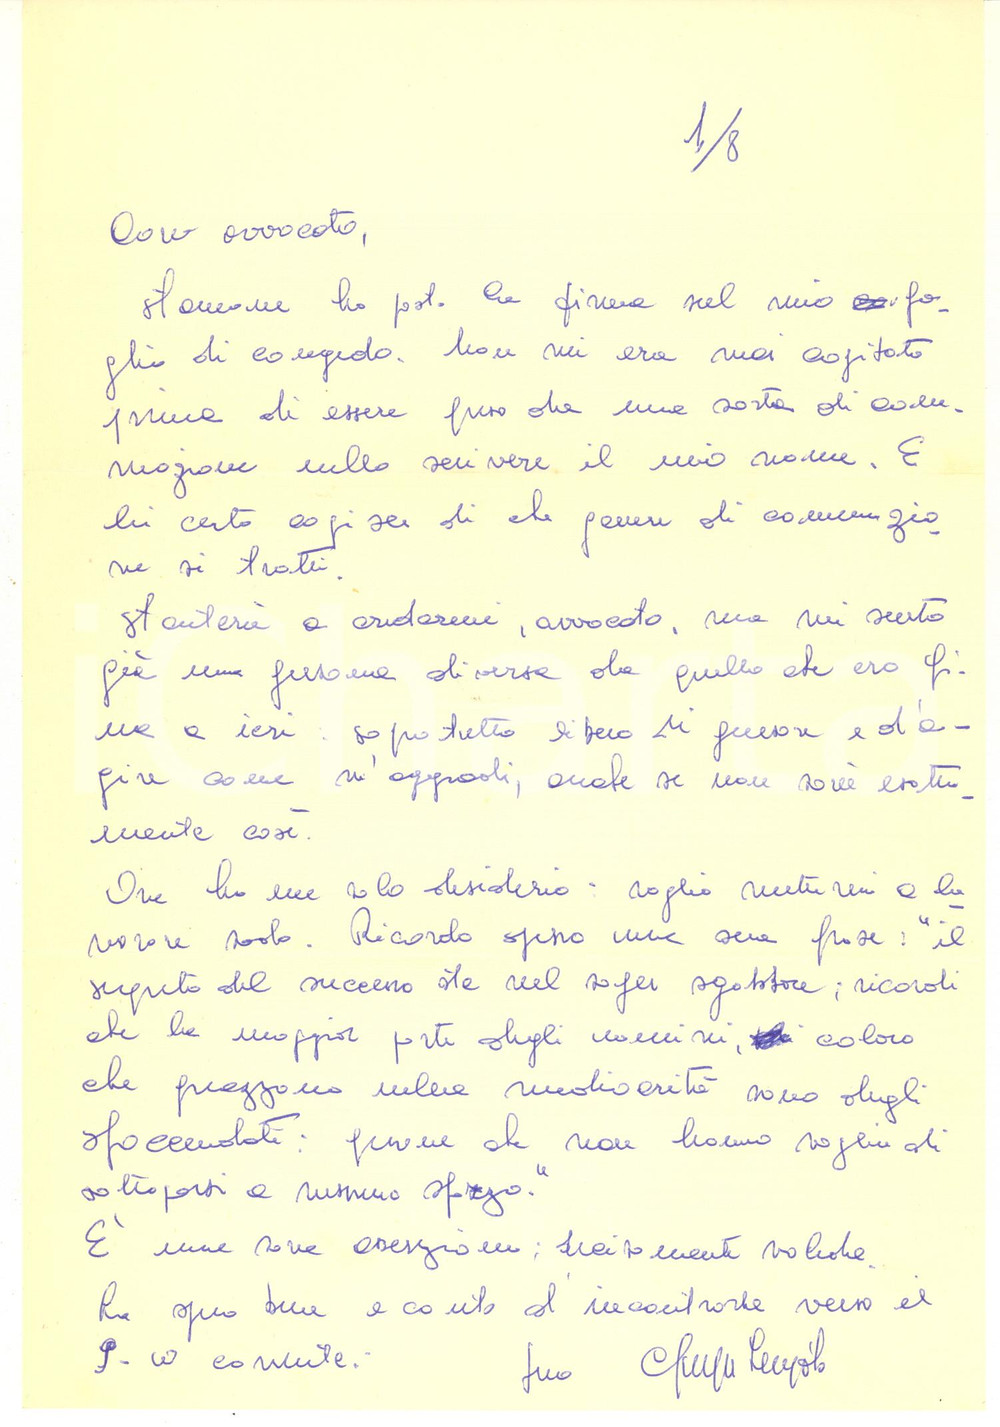 1/8
Caro avvocato,
stamane ho posto la firma sul mio fo-
glio di congedo. Non mi era mai capitato
prima di essere preso da una sorta di com-
mozione nello scrivere il mio nome. E
lei certo capisce di che genere di commozio-
ne si tratti.
Stenterà a credermi, avvocato, ma mi sento
già una persona diversa da quella che ero fi-
no a ieri: soprattutto libero di pensare e d'a-
gire come m'aggradi, anche se non sarà esatta-
mente così.
Ora ho un solo desiderio: voglio mettermi a la-
vorare sodo. Ricordo spesso una sua frase: "il
segreto del successo sta nel saper sgobbare; ricordi
che la maggior parte degli uomini, coloro
che guazzano nella mediocrità sono degli
sfaccendati: gente che non hanno voglia di
sottoporsi a nessuno sforzo."
È una sua asserzione; decisamente valida.
La spero bene e conto d'incontrarla verso il
9-10 corrente.-
Suo